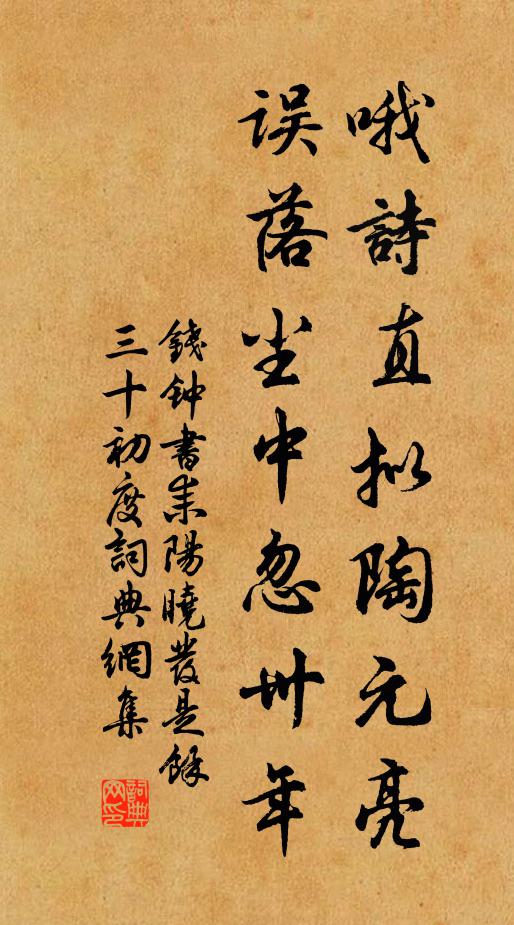 哦詩直拟陶元亮
误落尘中忽卅年
錢钟書耒陽曉發是餘
三十初度詞典網集
詞典
网印